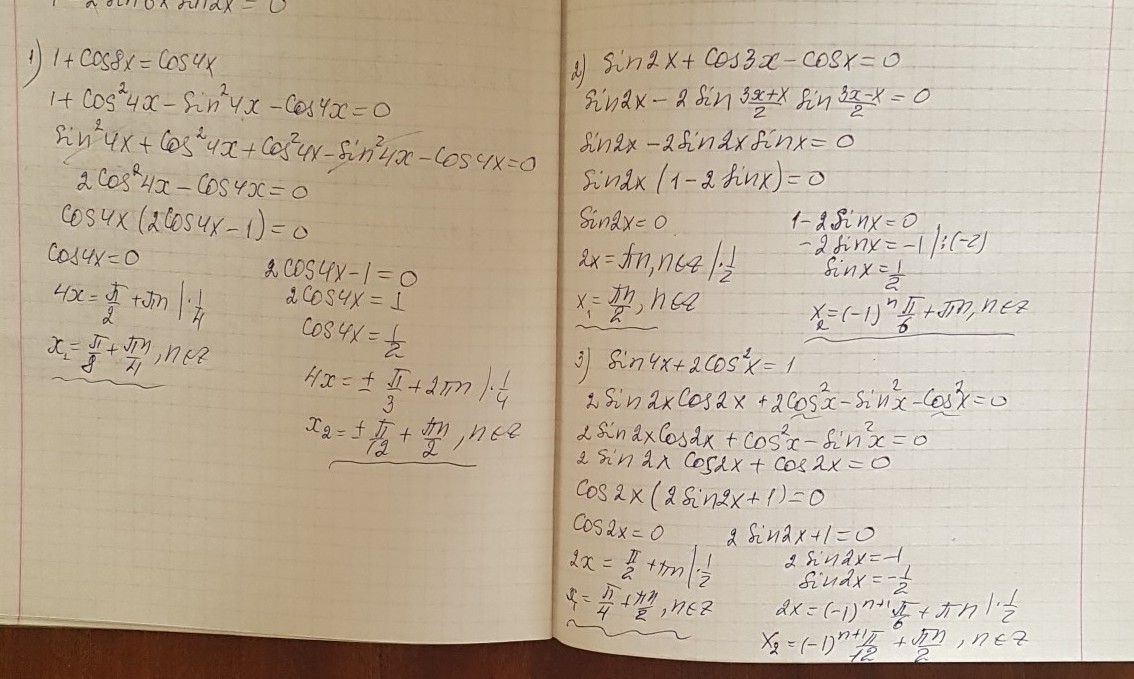 1) 1 + cos8x = cos4x
1 + cos²4x - sin²4x - cos4x = 0
sin²4x + cos²4x + cos²4x - sin²4x - cos4x = 0
2cos²4x - cos4x = 0
cos4x (2cos4x - 1) = 0
cos4x = 0
4x = π/2 + πn | · 1/4
x₁ = π/8 + πn/4, n∈Z
2cos4x - 1 = 0
2cos4x = 1
cos4x = 1/2
4x = ± π/3 + 2πn | · 1/4
x₂ = ± π/12 + πn/2, n∈Z
2) sin2x + cos3x - cosx = 0
sin2x - 2sin (3x+x)/2 sin (3x-x)/2 = 0
sin2x - 2sin2x sinx = 0
sin2x (1 - 2sinx) = 0
sin2x = 0
2x = πn, n∈Z | · 1/2
x₁ = πn/2, n∈Z
1 - 2sinx = 0
-2sinx = -1 | :(-2)
sinx = 1/2
x₂ = (-1)ⁿ π/6 + πn, n∈Z
3) sin4x + 2cos²x = 1
2sin2x cos2x + 2cos²x - sin²x - cos²x = 0
2sin2x cos2x + cos²x - sin²x = 0
2sin2x cos2x + cos2x = 0
cos2x (2sin2x + 1) = 0
cos2x = 0
2x = π/2 + πn | · 1/2
x₁ = π/4 + πn/2, n∈Z
2sin2x + 1 = 0
2sin2x = -1
sin2x = -1/2
2x = (-1)ⁿ⁺¹ π/6 + πn | · 1/2
x₂ = (-1)ⁿ⁺¹ π/12 + πn/2, n∈Z